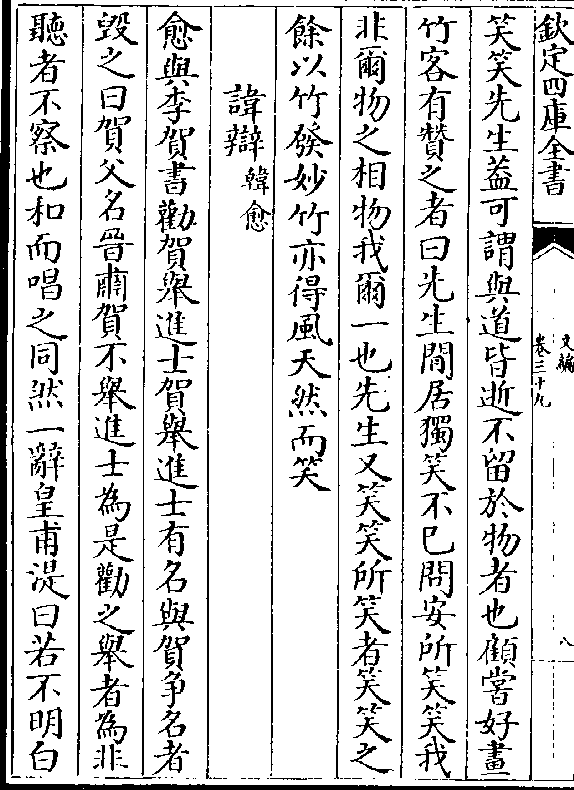 欽定四庫全書
文編
卷三十九
八
笑笑先生葢可謂與道皆逝不留於物者也顧嘗好畫
竹客有贊之者曰先生閒居獨笑不已問安所笑笑我
非爾物之相物我爾一也先生又笑笑所笑者笑笑之
餘以竹發妙竹亦得風天然而笑
諱辯韓愈
愈與李賀書勸賀舉進士賀舉進士有名與賀争名者
毀之曰賀父名晉肅賀不舉進士為是勸之舉者為非
聽者不察也和而唱之同然一辭皇甫湜曰若不明白